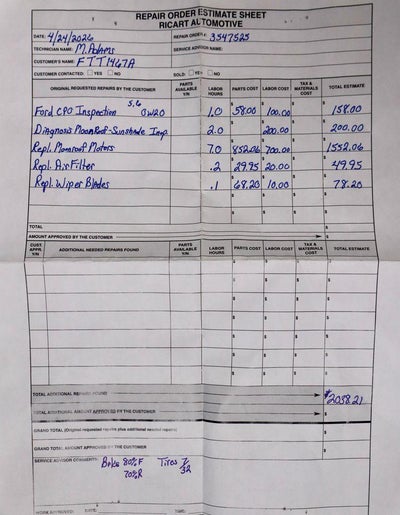 REPAIR ORDER ESTIMATE SHEET
RICART AUTOMOTIVE
DATE: 4/24/2026 REPAIR ORDER #: 3547525
TECHNICIAN NAME: M. Adams SERVICE ADVISOR NAME:
CUSTOMER'S NAME: FTT1467A
CUSTOMER CONTACTED: YES NO SOLD: YES NO
ORIGINAL REQUESTED REPAIRS BY THE CUSTOMER PARTS AVAILABLE Y/N LABOR HOURS PARTS COST LABOR COST TAX & MATERIALS COST TOTAL ESTIMATE
Ford CPO Inspection 5.6 0W20 1.0 $58.00 $100.00 $ $158.00
Diagnosis MoonRoof-Sunshade Inop 2.0 $ $200.00 $ $200.00
Repl. Moonroof Motors 7.0 $852.06 $700.00 $ $1552.06
Repl. Air Filter .2 $29.95 $20.00 $ $49.95
Repl. Wiper Blades .1 $68.20 $10.00 $ $78.20
TOTAL $
AMOUNT APPROVED BY THE CUSTOMER $
CUST. APPR. Y/N ADDITIONAL NEEDED REPAIRS FOUND PARTS AVAILABLE Y/N LABOR HOURS PARTS COST LABOR COST TAX & MATERIALS COST TOTAL ESTIMATE
TOTAL ADDITIONAL REPAIRS FOUND $2038.21
TOTAL ADDITIONAL AMOUNT APPROVED BY THE CUSTOMER $
GRAND TOTAL (Original requested repairs plus additional needed repairs) $
GRAND TOTAL AMOUNT APPROVED BY THE CUSTOMER $
SERVICE ADVISOR COMMENTS: Brks 80% F Tires 7/32
70% R
WORK APPROVED: DATE: TIME: